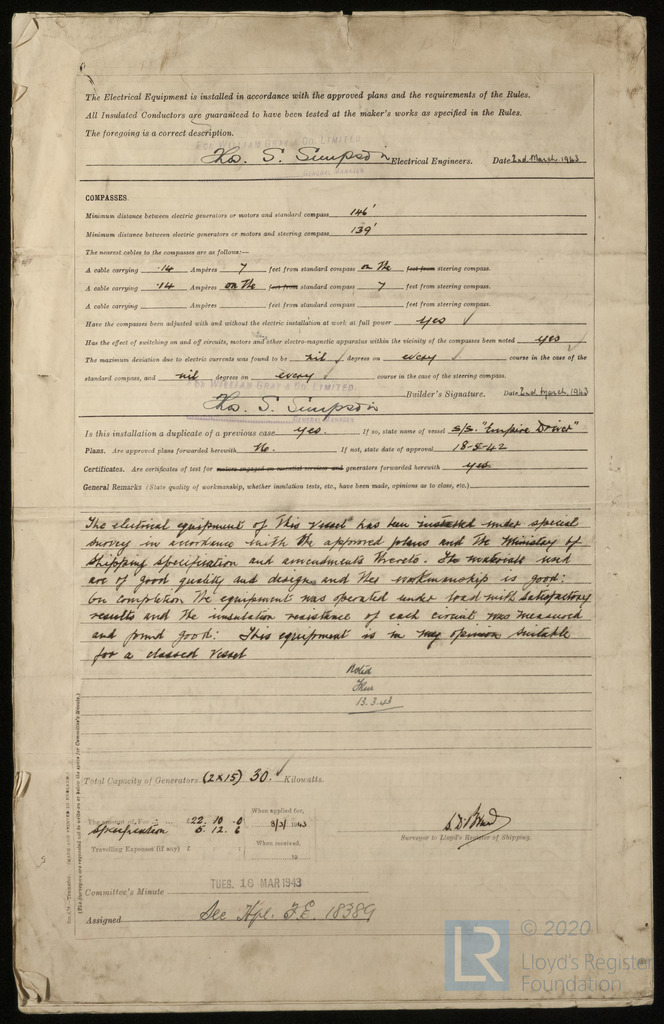 The Electrical Equipment is installed in accordance with the approved plans and the requirements of the Rules.
All Insulated Conductors are guaranteed to have been tested at the maker's works as specified in the Rules.
The foregoing is a correct description.
FOR WILLIAM GRAY & CO. LIMITED.
Thos. S. Simpson Electrical Engineers. Date 2nd March 1943
GENERAL MANAGER
COMPASSES.
Minimum distance between electric generators or motors and standard compass 146'
Minimum distance between electric generators or motors and steering compass 139'
The nearest cables to the compasses are as follows:—
A cable carrying .14 Ampères 7 feet from standard compass on the feet from steering compass.
A cable carrying .14 Ampères on the feet from standard compass 7 feet from steering compass.
A cable carrying Ampères feet from standard compass feet from steering compass.
Have the compasses been adjusted with and without the electric installation at work at full power yes ✓
Has the effect of switching on and off circuits, motors and other electro-magnetic apparatus within the vicinity of the compasses been noted yes ✓
The maximum deviation due to electric currents was found to be nil ✓ degrees on every ✓ course in the case of the
standard compass, and nil degrees on every ✓ course in the case of the steering compass.
FOR WILLIAM GRAY & CO. LIMITED.
Thos. S. Simpson Builder's Signature. Date 2nd March 1943
GENERAL MANAGER
Is this installation a duplicate of a previous case yes. If so, state name of vessel s/s. "Empire Driver"
Plans. Are approved plans forwarded herewith No. If not, state date of approval 18-8-42
Certificates. Are certificates of test for motors engaged on essential services and generators forwarded herewith yes
General Remarks (State quality of workmanship, whether insulation tests, etc., have been made, opinions as to class, etc.)
The electrical equipment of this vessel has been installed under special
survey in accordance with the approved plans and the Ministry of
Shipping specification and amendments thereto. The materials used
are of good quality and design and the workmanship is good:
On completion the equipment was operated under load with satisfactory
results and the insulation resistance of each circuit was measured
and found good: This equipment is in my opinion suitable
for a classed vessel
Noted
13.3.43
Total Capacity of Generators (2x15) 30. ✓ Kilowatts.
The amount of Fee £22 . 10 . 0 When applied for,
Specification 5 . 12 . 6 8/3/1943
Travelling Expenses (if any) £ : : When received,
19
Surveyor to Lloyd's Register of Shipping.
Committee's Minute TUES. 16 MAR 1943
Assigned See Hpl. F.E. 18389
LR © 2020
Lloyd's Register
Foundation